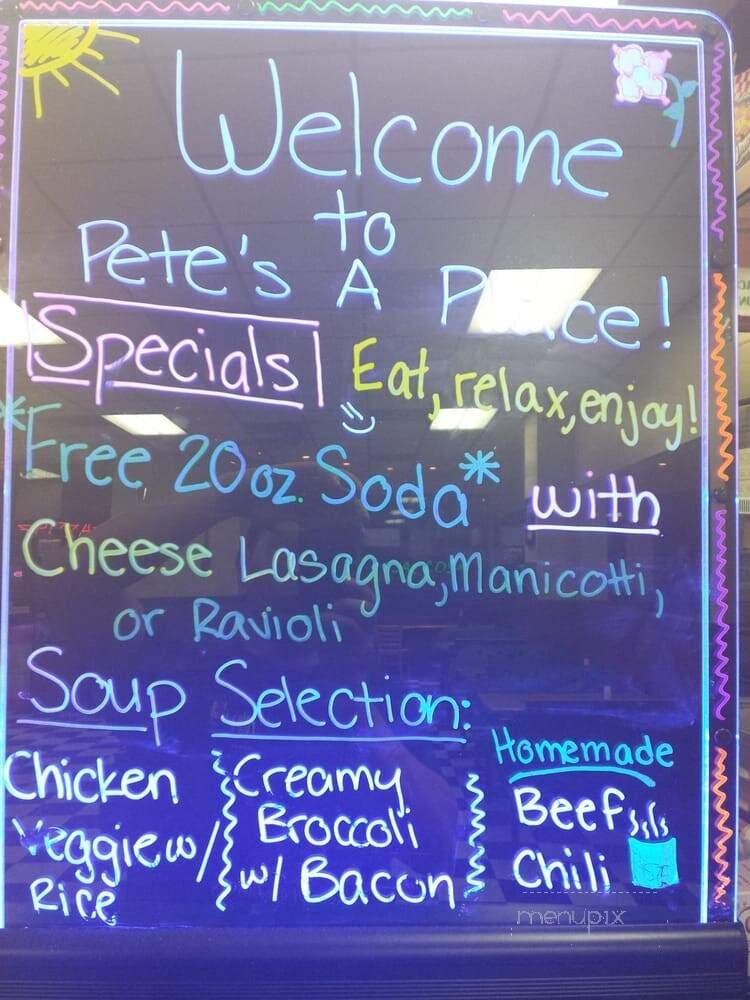 Welcome
to
Pete's A Place!
Specials Eat, relax, enjoy!
*Free 20 oz. Soda* with
Cheese Lasagna, Manicotti,
or Ravioli
Soup Selection:
Chicken
Veggie w/
Rice
Creamy
Broccoli
w/ Bacon
Homemade
Beef
Chili
menupix